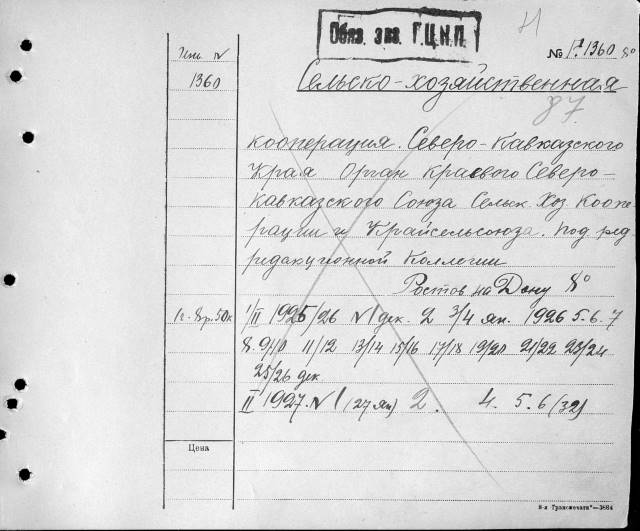 Обяз. экз. Г.Ц.К.П.
№ 1360 8°
Инв. N
1360
Сельско-хозяйственная
87
кооперация. Северо-Кавказского
Края Орган краевого Северо-
кавказского Союза Сельск. Хоз. Коопе-
рации и Крайсельсоюза. Под ред.
редакционной Коллегии
Ростов на Дону 8°
1г. - 8р. 50к
I/II 1925/26 N 1 дек. 2 3/4 ян. 1926 5. 6. 7
8. 9/10 11/12 13/14 15/16 17/18 19/20 21/22 23/24
25/26 дек
II 1927. N 1 (27 ян) 2. 4. 5. 6 (32)
Цена
8-я Транспечати"—3664